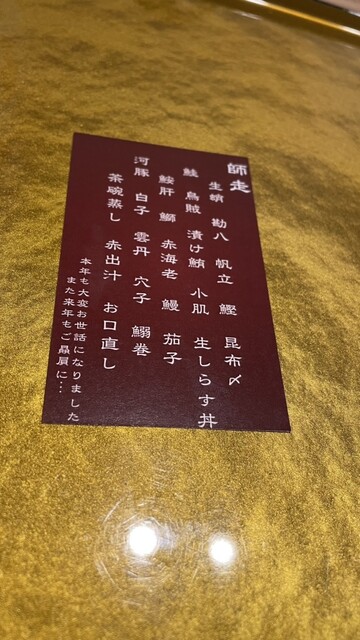 師走
生蛸　勘八　帆立　鰹　昆布〆
鮭　烏賊　漬け鮪　小肌　生しらす丼
鮟肝　鰤　赤海老　鰻　茄子
河豚　白子　雲丹　穴子　鰯巻
茶碗蒸し　赤出汁　お口直し
本年も大変お世話になりました
また来年もご贔屓に…